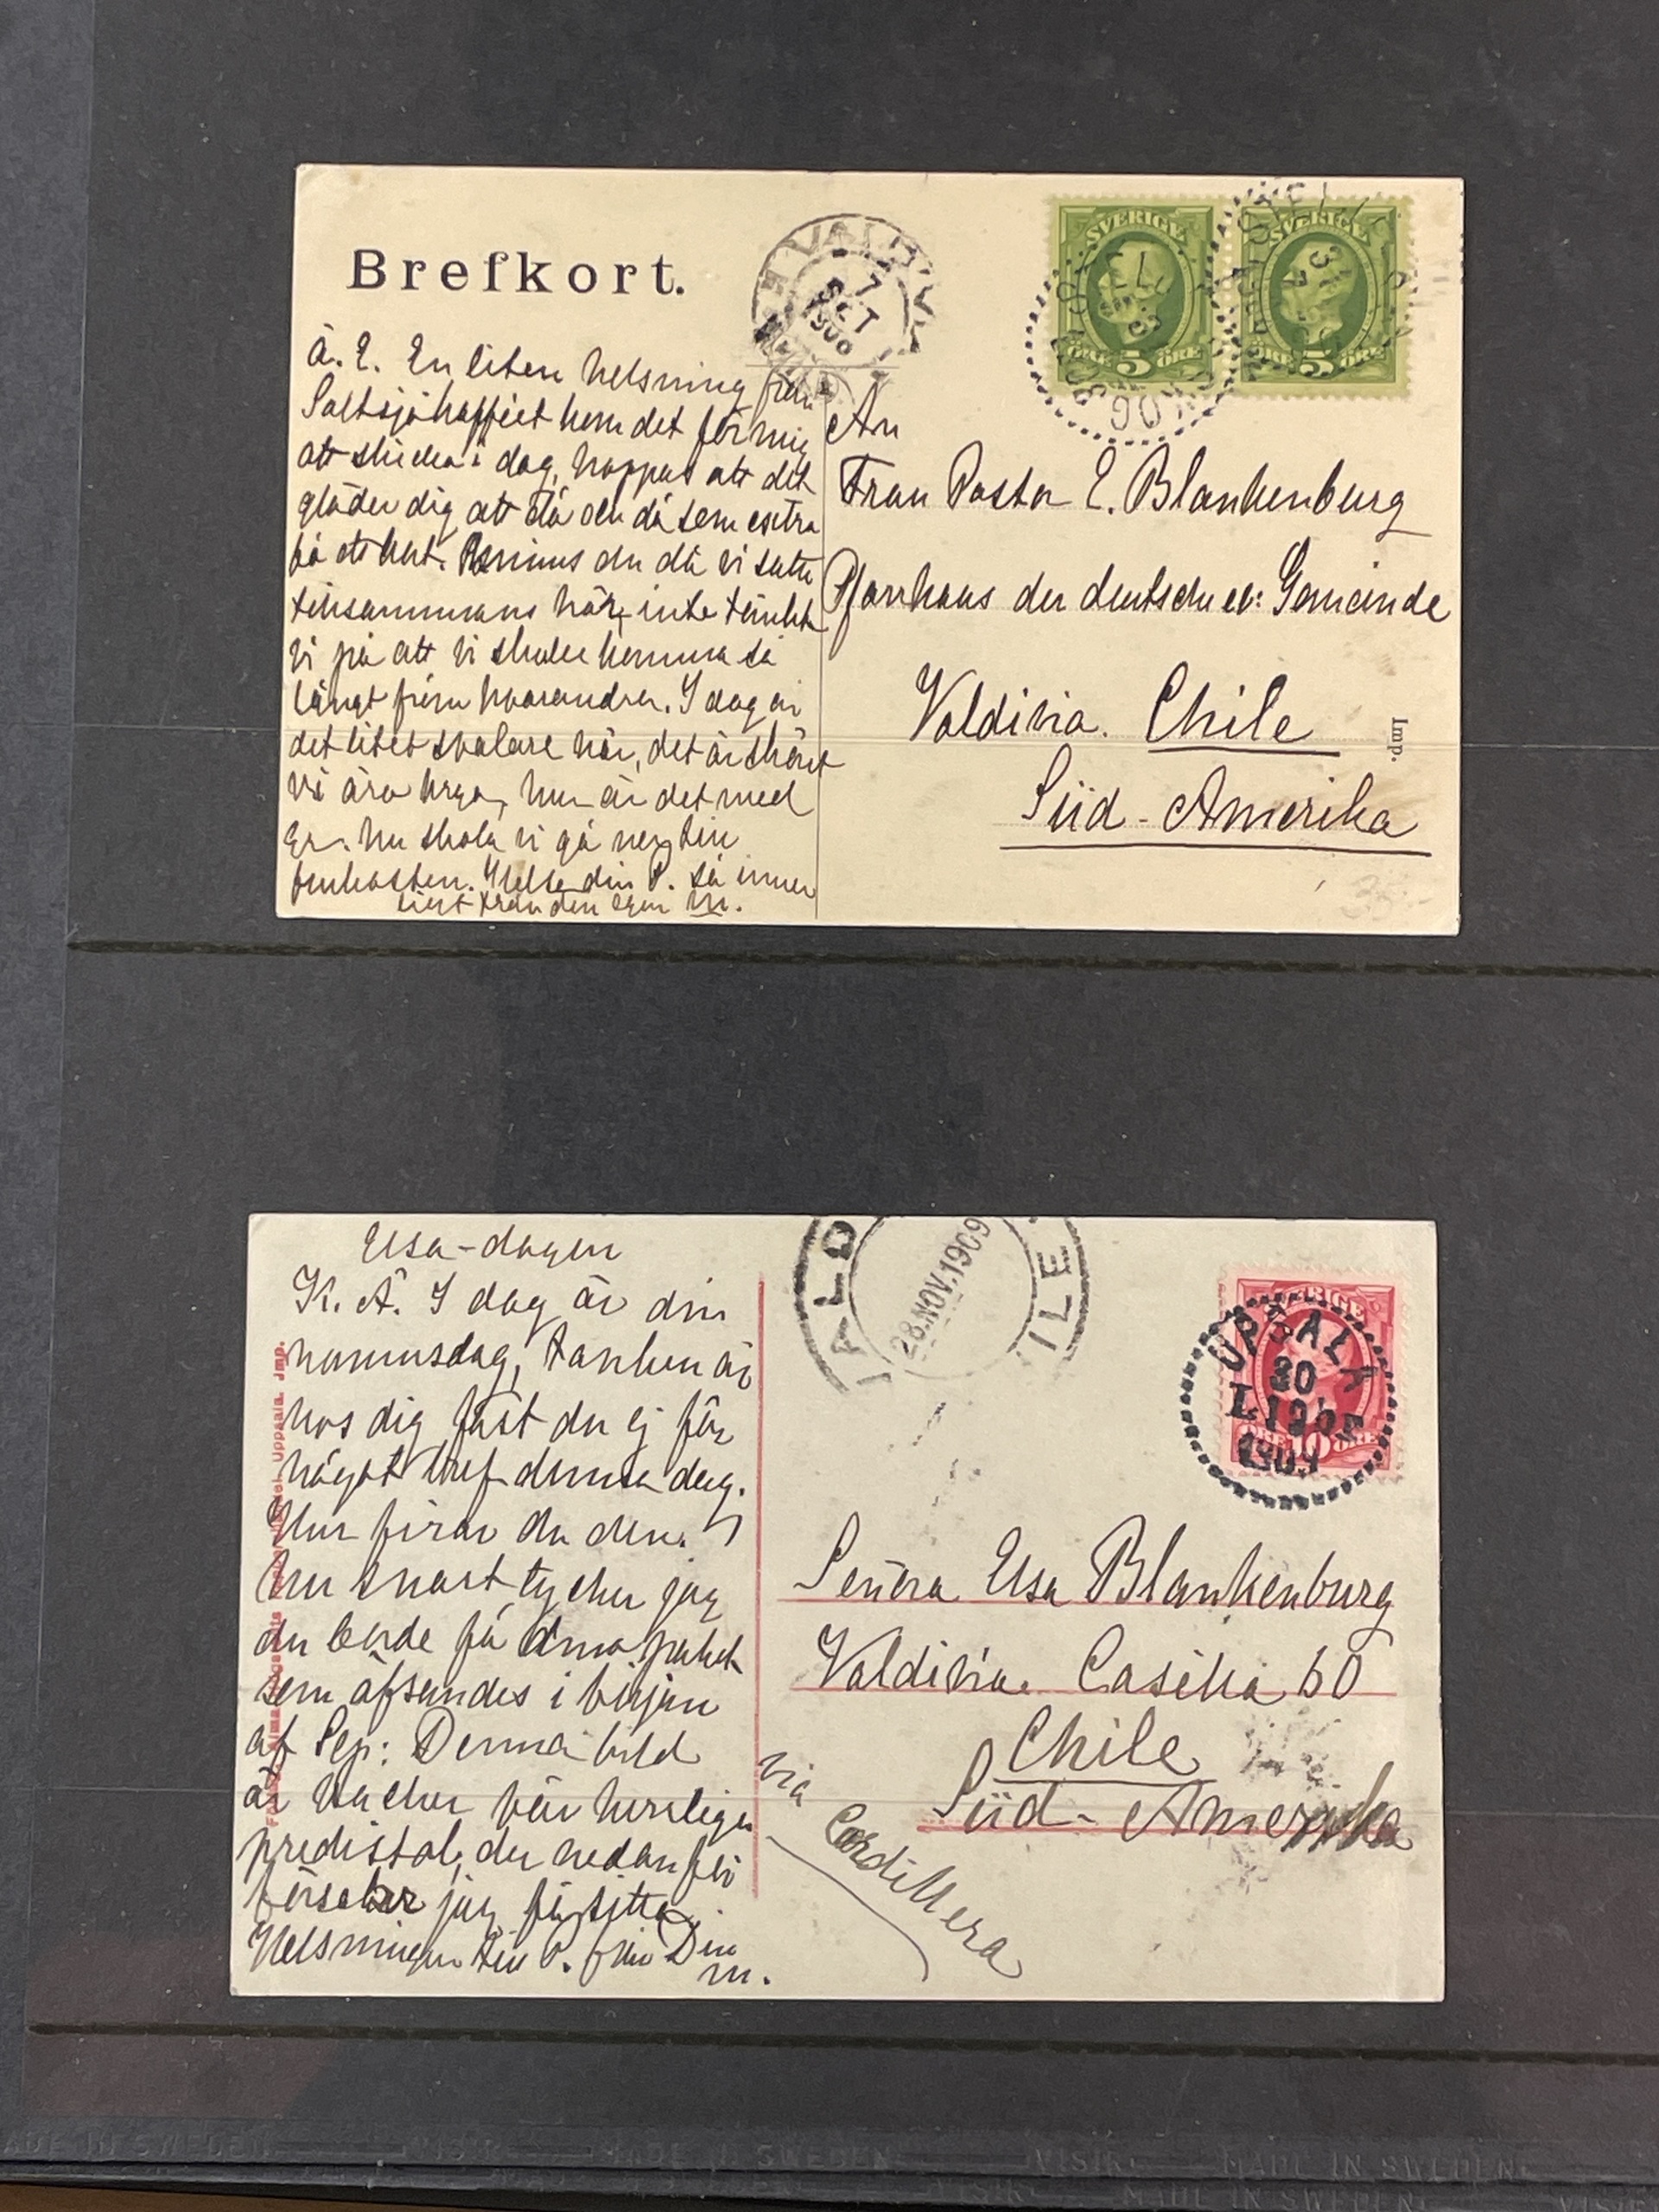 Brefkort.
Ä. E. En liten helsning från
Saltsjökaffeet kom det för mig
att skicka i dag, hoppas att det
gläder dig att då och då som extra
få ett kort. Minns du då vi sutto
tillsammans här, inte tänkte
vi på att vi skulle komma så
långt från hvarandra. I dag är
det litet svalare här, det är skönt
Vi äro krya, hur är det med
Er. Nu skola vi gå ner till
frukosten. Helse din P. så inner
ligt från den egen M.
VALDIVIA
7
OCT
SVERIGE
5
ÖRE ÖRE
SVERIGE
5
ÖRE ÖRE
An
Frau Pastor E. Blankenburg
Pfarrhaus der deutschen ev: Gemeinde
Valdivia. Chile
Süd-Amerika
Imp.
35:-
Elsa-dagen
K. Ä. I dag är din
namnsdag, tanken är
hos dig fast du ej får
något bref denna dag.
Hur firar du den. ?
Nu snart tycker jag
du borde få dina paket
som afsändes i början
af Sep: Denna bild
är vacker vår herrliga
predistol, der nedanför
försöker jag få sitta.
Helsningar till P. från Din
M.
Uppsala. Imp.
VALD
28.NOV.1909
ILE
SVERIGE
10
ÖRE ÖRE
UPSALA
30
1909
Señora Elsa Blankenburg
Valdivia. Casilla 60
Chile
Süd-Amerika
via
Cordillera
MADE IN SWEDEN VISIR MADE IN SWEDEN VISIR MADE IN SWEDEN
VISIR MADE IN SWEDEN VISIR